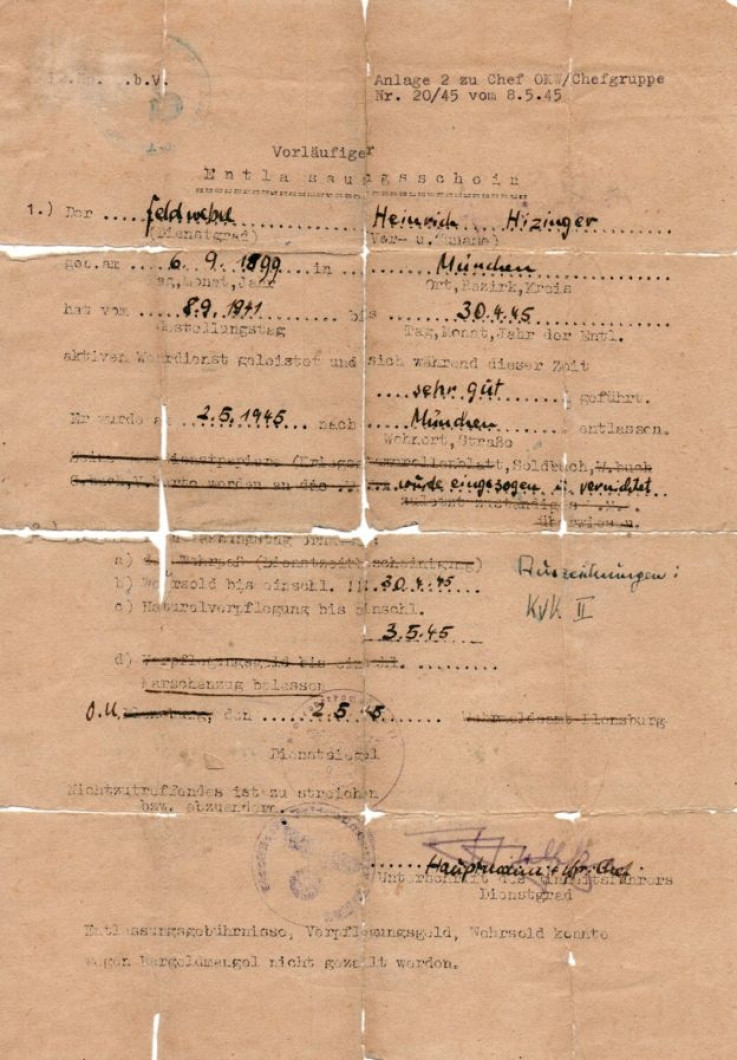 .b.V. Anlage 2 zu Chef OKW/Chefgruppe
Nr. 20/45 vom 8.5.45
Vorläufiger
Entlassungsschein
1.) Der .... Feldwebel .... Heinrich .... Hizinger
(Dienstgrad) Vor- u.
geb.am .... 6. 9. 1899 .. in ... München
Tag,Monat,Jahr Ort,Bezirk,Kreis
hat vom .... 8.9.1941 .... bis .... 30.4.45
stellungstag Tag,Monat,Jahr der Entl.
aktiven Wehrdienst geleistet und sich während dieser Zeit
.... sehr gut .... geführt.
Er wurde am 2.5.1945 ... nach .... München .... entlassen.
Wohnort,Straße
Dienstpapiere (Kriegsstammrollenblatt, Soldbuch, W.buch
werden an das .... wurde eingezogen u vernichtet
zuletzt zuständige
überwiesen.
a) Wehrpaß (Dienstzeitbescheinigung)
b) Wehrsold bis einschl. ... 30.4.45
Auszeichnungen:
KVK II
c) Naturalverpflegung bis einschl.
3.5.45
d) Verpflegungsgeld bis einschl. .........
Marschanzug belassen
O.U. Flensburg, den .... 2 5 45 .... Wehrmeldeamt Flensburg
Dienstsiegel
Nichtzutreffendes ist zu streichen
bzw. abzuändern.
Hauptmann u
Unterschrift des Einheitsführers
Dienstgrad
Entlassungsgebührnisse, Verpflegungsgeld, Wehrsold konnte
wegen Bargeldmangel nicht gezahlt werden.